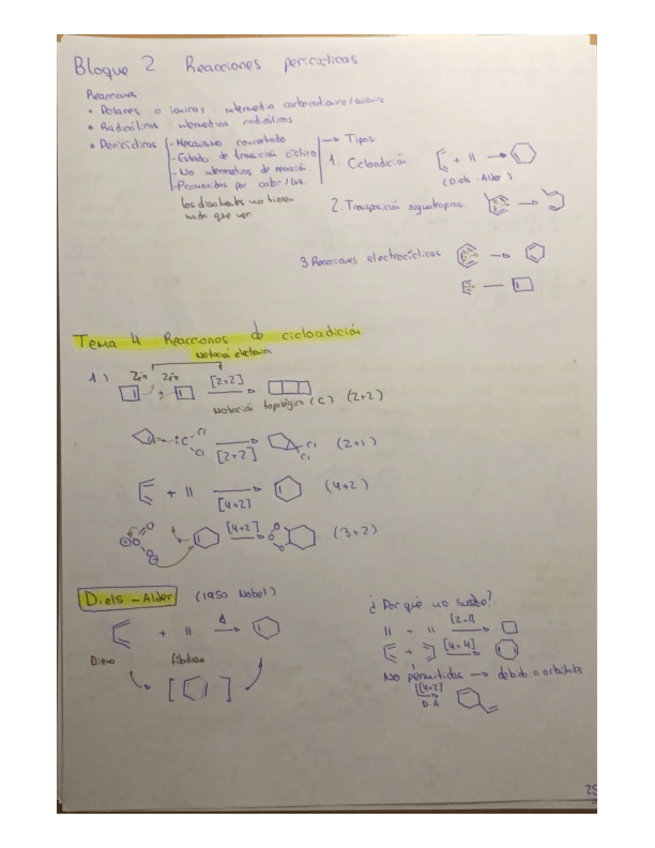 Bloque 2 Reacciones pericíclicas
Reacciones
• Polares o iónicas intermedio carbocationico/anionic
• Radicálicas intermedios radicálicos
• Pericíclicas - Mecanismo concertado
- Estado de transición cíclico
- No intermedios de reacción
- Promovidas por calor/luz.
los disolventes no tienen
nada que ver.
→ Tipos
1. Cicloadición
(Diels-Alder)
2. Transposición sigmatropica
3 Reacciones electrocíclicas
Tema 4 Reacciones de cicloadición.
Notación electrónica
1.) 2ēπ 2ēπ [2+2]
Notación topológica (C) (2+2)
:C Cl Cl [2+2] Cl Cl (2+1)
+ [4+2] (4+2)
[4+2] (3+2)
Diels-Alder (1950 Nobel)
+ Δ
Dieno filodieno
¿Por qué no sucede?
+ [2+2]
+ [4+4]
No permitidas → debido a orbitales
[4+2]
D.A
25